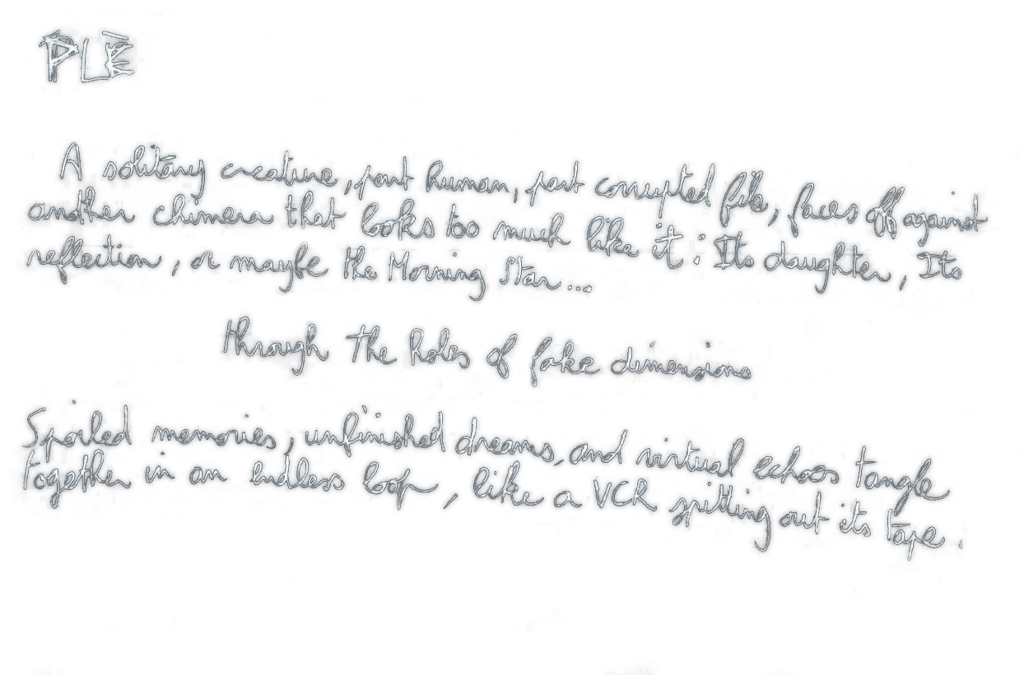 PLE
A solitary creature, part human, part corrupted file, faces off against
another chimera that looks too much like it : Its daughter, Its
reflection, or maybe the Morning Star...
through the holes of fake dimensions
Spoiled memories, unfinished dreams, and virtual echoes tangle
together in an endless loop, like a VCR spitting out its tape.